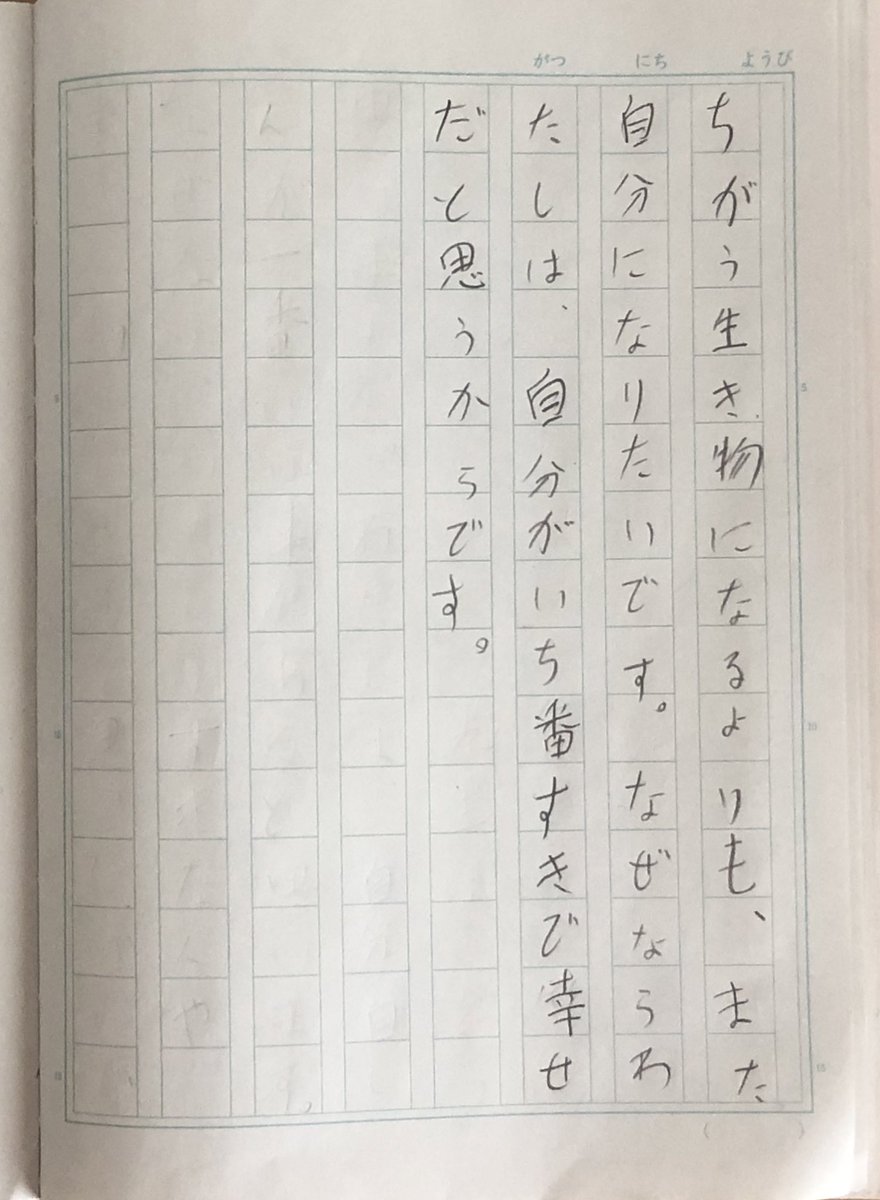 がつ にち ようび
ちがう生き物になるよりも、また
自分になりたいです。なぜならわ
たしは、自分がいち番すきで幸せ
だと思うからです。
5
10
15
5
10
15